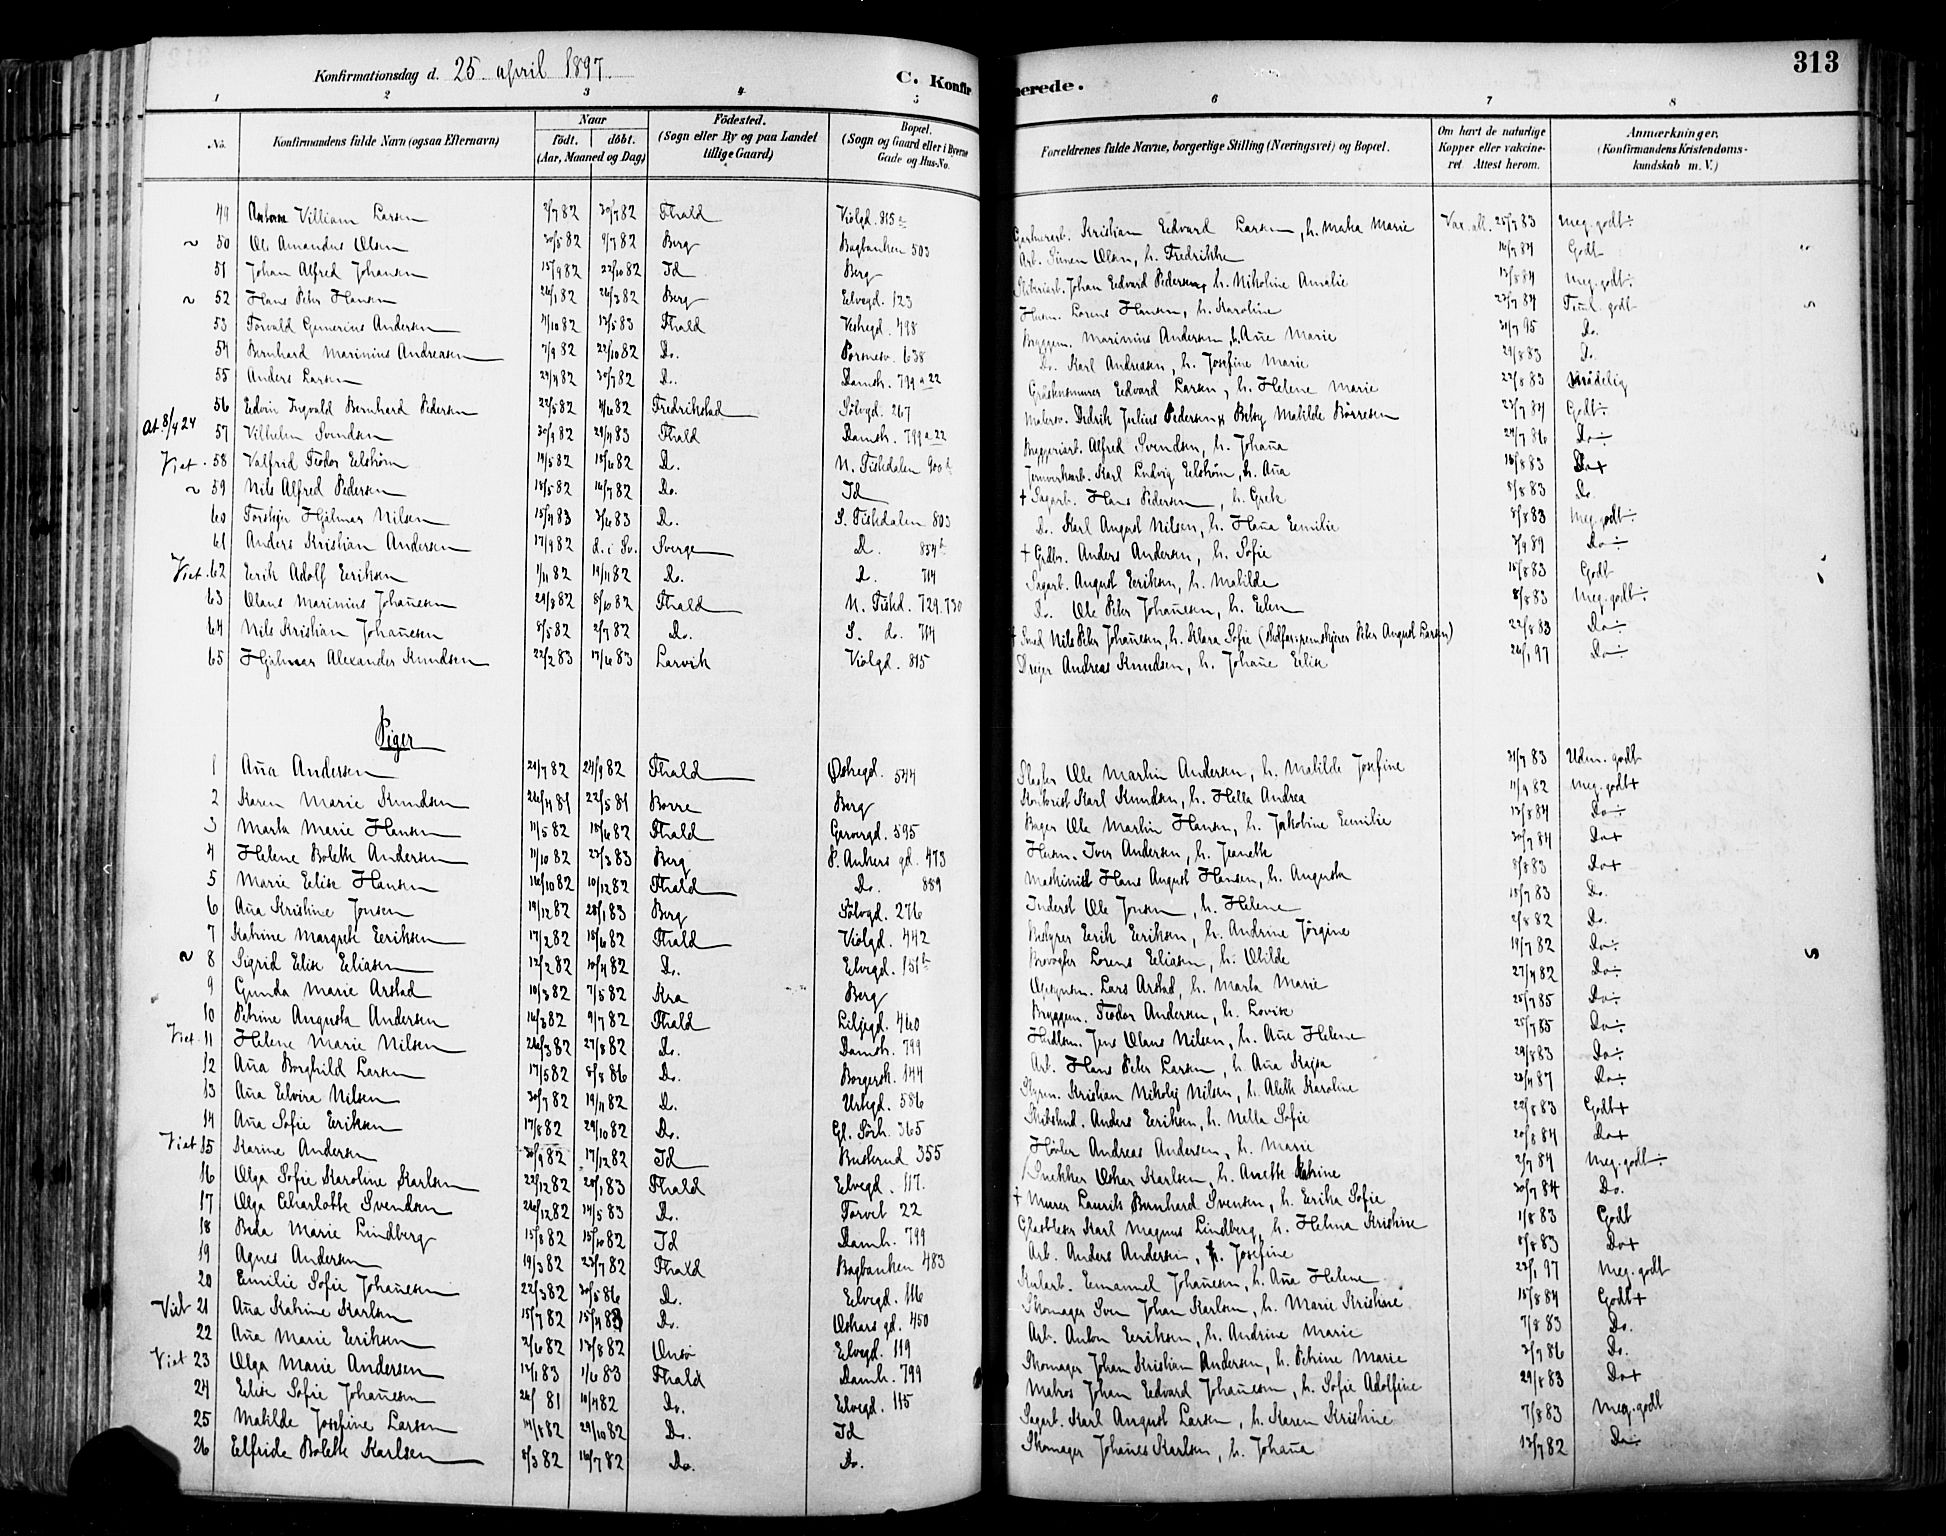 Konfirmationsdag d. 25. april 1897.
C. Konfirmerede.
313
1 2 3 4 5 6 7 8
No. Konfirmandens fulde Navn (ogsaa Efternavn) Naar født. døbt. (Aar, Maaned og Dag) Fødested. (Sogn eller By og paa Landet tillige Gaard) Bopæl. (Sogn og Gaard eller i Byerne Gade og Hus-No. Forældrenes fulde Navne, borgerlige Stilling (Næringsvei) og Bopæl. Om havt de naturlige Kopper eller vakcineret. Attest herom. Anmærkninger. (Konfirmandens Kristendomskundskab m. V.)
49 Villiam Larsen 2/7 82 30/7 82 Fhald Violgd. 815 Kristian Edvard Larsen, h. Maka Marie Vax. att. 25/7 83 Meg. godt
50 Ole Amandus Olsen 30/5 82 9/7 82 Berg Bagbanken 503 Arb. Simen Olsen, h. Fredrikke 10/7 84 Godt
51 Johan Alfred Johansen 15/9 82 22/10 82 Id Berg Johan Edvard Pedersen, h. Nikoline Amalie 13/8 84 Meg. godt
52 Hans Peter Hansen 26/1 82 26/3 82 Berg Elvegd. 123 Husm. Lorens Hansen, h. Karoline 23/7 84 godt
53 Torvald Gunerius Andersen 4/10 82 13/5 83 Fhald Vestregd. 498 Byggem. Marinius Andersen, h. Ane Marie 31/7 95 Do.
54 Bernhard Marinius Andreasen 7/9 82 22/10 82 Do. 638 Do. Karl Andreasen, h. Josefine Marie 29/8 83 Do.
55 Anders Larsen 24/4 82 30/7 82 Do. Damstr. 799 a 22 Edvard Larsen, h. Helene Marie 22/8 83 Mådelig
56 Edvin Ingvald Bernhard Pedersen 22/5 82 4/6 82 Fredrikstad Sølvgd. 267 Didrik Julius Pedersen, Betsy Matilde Børresen 23/7 84 Godt
at. 8/4 24 57 Vilhelm Svendsen 30/9 82 29/4 83 Fhald Damstr. 799 a 22 Byggeriarb. Alfred Svendsen, h. Johana 24/7 86 Do
Viet. 58 Valfrid Teodor Edstrøm 19/5 82 18/6 82 Do. N. Tistedalen 900 Jernverksarb. Karl Ludvig Edstrøm, h. Ana 10/8 83 Do +
59 Nils Alfred Pedersen 18/5 82 16/7 82 Do. Id † Sagarb. Hans Pedersen, h. Grete 8/8 83 Do
60 Torstein Hjalmar Nilsen 15/4 83 3/6 83 Do. S. Tistedalen 803 Do. Karl August Nilsen, h. Hana Emilie 8/8 83 Meg. godt
61 Anders Kristian Andersen 17/9 82 d. i Sv. Sverge Do. 834 † Grdbr. Anders Andersen, h. Sofie 3/9 89 Do
Viet. 62 Erik Adolf Eriksen 1/11 82 19/11 82 Do. Do. 714 Sagarb. August Eriksen, h. Matilde 15/8 83 Godt
63 Olaus Marinius Johanesen 29/8 82 8/10 82 Fhald N. Tistd. 729.730 Do. Ole Peter Johanesen, h. Elen 8/8 83 Meg. godt
64 Nils Kristian Johanesen 8/5 82 2/7 82 Do. S. do. 714 † Smed Nils Peter Johanesen, h. Klara Sofie (stedfar: remskjærer Peter August Larsen) 22/8 83 Do
65 Hjalmar Alexander Knudsen 22/2 83 17/6 83 Larvik Violgd. 815 Dreier Andreas Knudsen, h. Johane Elise 26/1 97 Do
Piger
1 Ana Andersen 21/7 82 24/9 82 Fhald Østregd. 544 Slagter Ole Martin Andersen, h. Matilde Josefine 31/7 83 Udm. godt
2 Karen Marie Knudsen 26/4 81 22/5 81 Borre Berg Kontorist Karl Knudsen, h. Hella Andrea 11/9 82 Meg. godt +
3 Marta Marie Hansen 11/5 82 18/6 82 Fhald Garvergd. 595 Bager Ole Martin Hansen, h. Jakobine Emilie 13/8 84 Do
4 Helene Bolette Andersen 11/10 82 23/3 83 Berg P. Ankers gd. 473 Husm. Iver Andersen, h. Jeanette 30/7 84 Do +
5 Marie Elise Hansen 16/10 82 10/12 82 Fhald Do. 889 Maskinist Hans August Hansen, h. Augusta 8/8 83 Do +
6 Ana Kristine Jonsen 19/12 82 28/1 83 Berg Sølvgd. 276 Inderst Ole Jonsen, h. Helene 18/7 83 Do.
7 Katrine Margrete Eriksen 17/2 82 18/6 82 Fhald Violgd. 442 Bestyrer Eerik Eriksen, h. Andrine Jørgine 2/8 82 Do.
8 Sigrid Elise Eliasen 12/2 82 10/4 82 Do. Elvegd. 151 Brovogter Lorens Eliasen, h. Olilde 19/7 82 Do
9 Gunda Marie Arstad 10/3 82 7/5 82 Kra Berg Lars Arstad, h. Marta Marie 27/4 82 Do
10 Petrine Augusta Andersen 16/3 82 9/7 82 Fhald Liljegd. 460 Byggem. Teodor Andersen, h. Lovise 25/7 85 Do
Viet. 11 Helene Marie Nilsen 26/3 82 27/8 82 Do. Damstr. 799 Hudlsm. Jens Olaus Nilsen, h. Ane Helene 25/7 85 Do
12 Ana Borghild Larsen 17/5 82 8/8 86 Do. Borgerst. 144 Arb. Hans Peter Larsen, h. Ana Kajsa 29/8 83 Do
13 Ana Elvira Nilsen 30/7 82 19/11 82 Do. Urtegd. 586 Styrm. Kristian Nikolaj Nilsen, h. Alette Karoline 28/4 87 Do
14 Ana Sofie Eriksen 17/8 82 29/10 82 Do. Gl. Sørh. 365 Anders Eriksen, h. Nella Sofie 22/8 83 Godt +
Viet 15 Karine Andersen 30/9 82 17/12 82 Id Buskerud 355 Høvler Andreas Andersen, h. Marie 20/8 84 Do +
16 Olga Sofie Karoline Karlsen 22/12 82 28/1 83 Fhald Elvegd. 117. Snekker Oskar Karlsen, h. Anette Katrine 2/7 84 Meg. godt
17 Olga Charlotte Svendsen 26/12 82 14/5 83 Do. Torvet 22 † Murer Laurits Bernhard Svensen, h. Erika Sofie 30/7 84 Do.
18 Beda Marie Lindberg 15/8 82 15/10 82 Id Damh. 799 Glasbleser Karl Magnus Lindberg, h. Helma Kristine 1/8 83 Godt
19 Agnes Andersen 19/3 82 23/7 82 Fhald Bagbanken 483 Arb. Anders Andersen, h. Josefine 8/8 83 Do +
20 Emilie Sofie Johanesen 22/3 82 30/5 86 Do. Elvegd. 116 Kularb. Emanuel Johanesen, h. Ana Helene 23/1 97 Meg. godt
Viet 21 Ana Katrine Karlsen 15/7 82 15/4 83 Do. Oskars gd. 450 Skomager Sven Johan Karlsen, h. Marie Kristine 15/8 84 Godt +
22 Ana Marie Eriksen 3/6 82 13/8 82 Onsø Elvegd. 119 Arb. Anton Eriksen, h. Andrine Marie 7/8 83 Do.
Viet 23 Olga Marie Andersen 13/1 83 1/6 83 Fhald Damh. 799 Skomager Johan Kristian Andersen, h. Petrine Marie 3/7 86 Do.
24 Elise Sofie Johanesen 26/ 81 10/4 82 Do. Elvegd. 115 Matros Johan Edvard Johanesen, h. Sofie Adolfine 29/8 83 Do +
25 Matilde Josefine Larsen 14/8 82 29/10 82 Do. Id Sagarb. Karl August Larsen, h. Karen Kristine 7/8 83 Meg. godt
26 Elfride Bolette Karlsen 8/3 82 16/7 82 Do. Do. Skomager Johanes Karlsen, h. Johana 13/7 82 Do